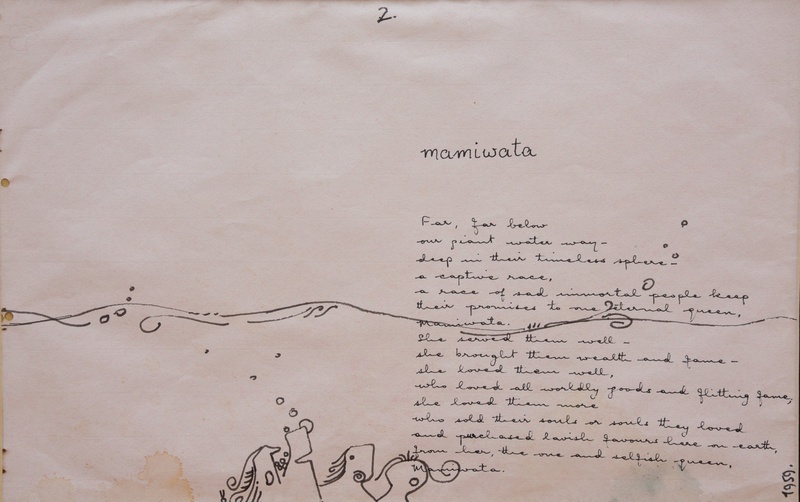 2.
mamiwata
Far, far below
our giant water way-
deep in their timeless sphere-
a captive race,
a race of sad immortal people keep
their promises to one eternal queen,
Mamiwata.
She served them well -
she brought them wealth and fame -
she loved them well,
who loved all worldly goods and flitting fame,
she loved them more
who sold their souls or souls they loved
and purchased lavish favours here on earth,
from her, the one and selfish queen,
Mamiwata.
1959.